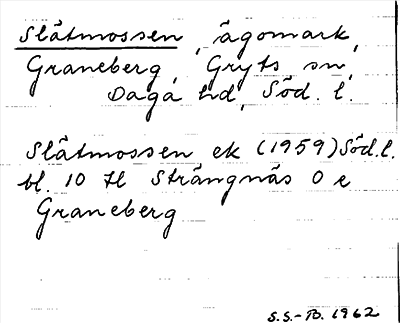 Slätmossen, ägomark,
Graneberg, Gryts sn,
Daga hd, Söd. l.
Slätmossen ek (1959) Söd.l.
bl. 10 H Strängnäs O e
Graneberg
S.S.-B. 1962